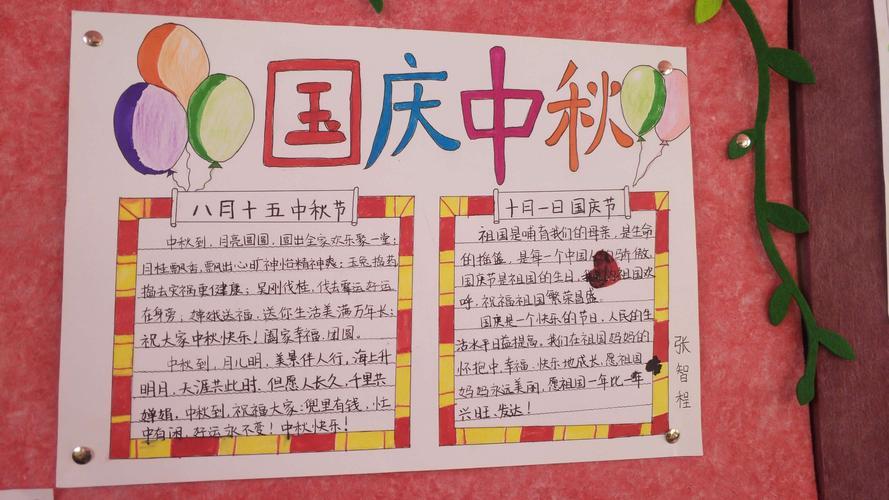 国庆中秋
八月十五中秋节
中秋到,月亮圆圆,圆出全家欢乐聚一堂;
月桂飘香,飘出心旷神怡精神爽;玉兔捣药
捣去灾祸更健康;吴刚伐桂,伐去霉运好运
在身旁;嫦娥送福,送你生活美满万年长;
祝大家中秋快乐!阖家幸福,团圆。
中秋到,月儿明,美景伴人行,海上升
明月,天涯共此时,但愿人长久,千里共
婵娟,中秋到,祝福大家:兜里有钱,忙
中有闲,好运永不变!中秋快乐!
十月一日国庆节
祖国是哺育我们的母亲,是生命
的摇篮,是每一个中国人的骄傲。
国庆节是祖国的生日,祖国欢
呼,祝福祖国繁荣昌盛。
国庆是一个快乐的节日,人民的生
活水平日益提高。我们在祖国妈妈的
怀抱中,幸福、快乐地成长,愿祖国
妈妈永远美丽,愿祖国一年比一年
兴旺、发达!
张智程